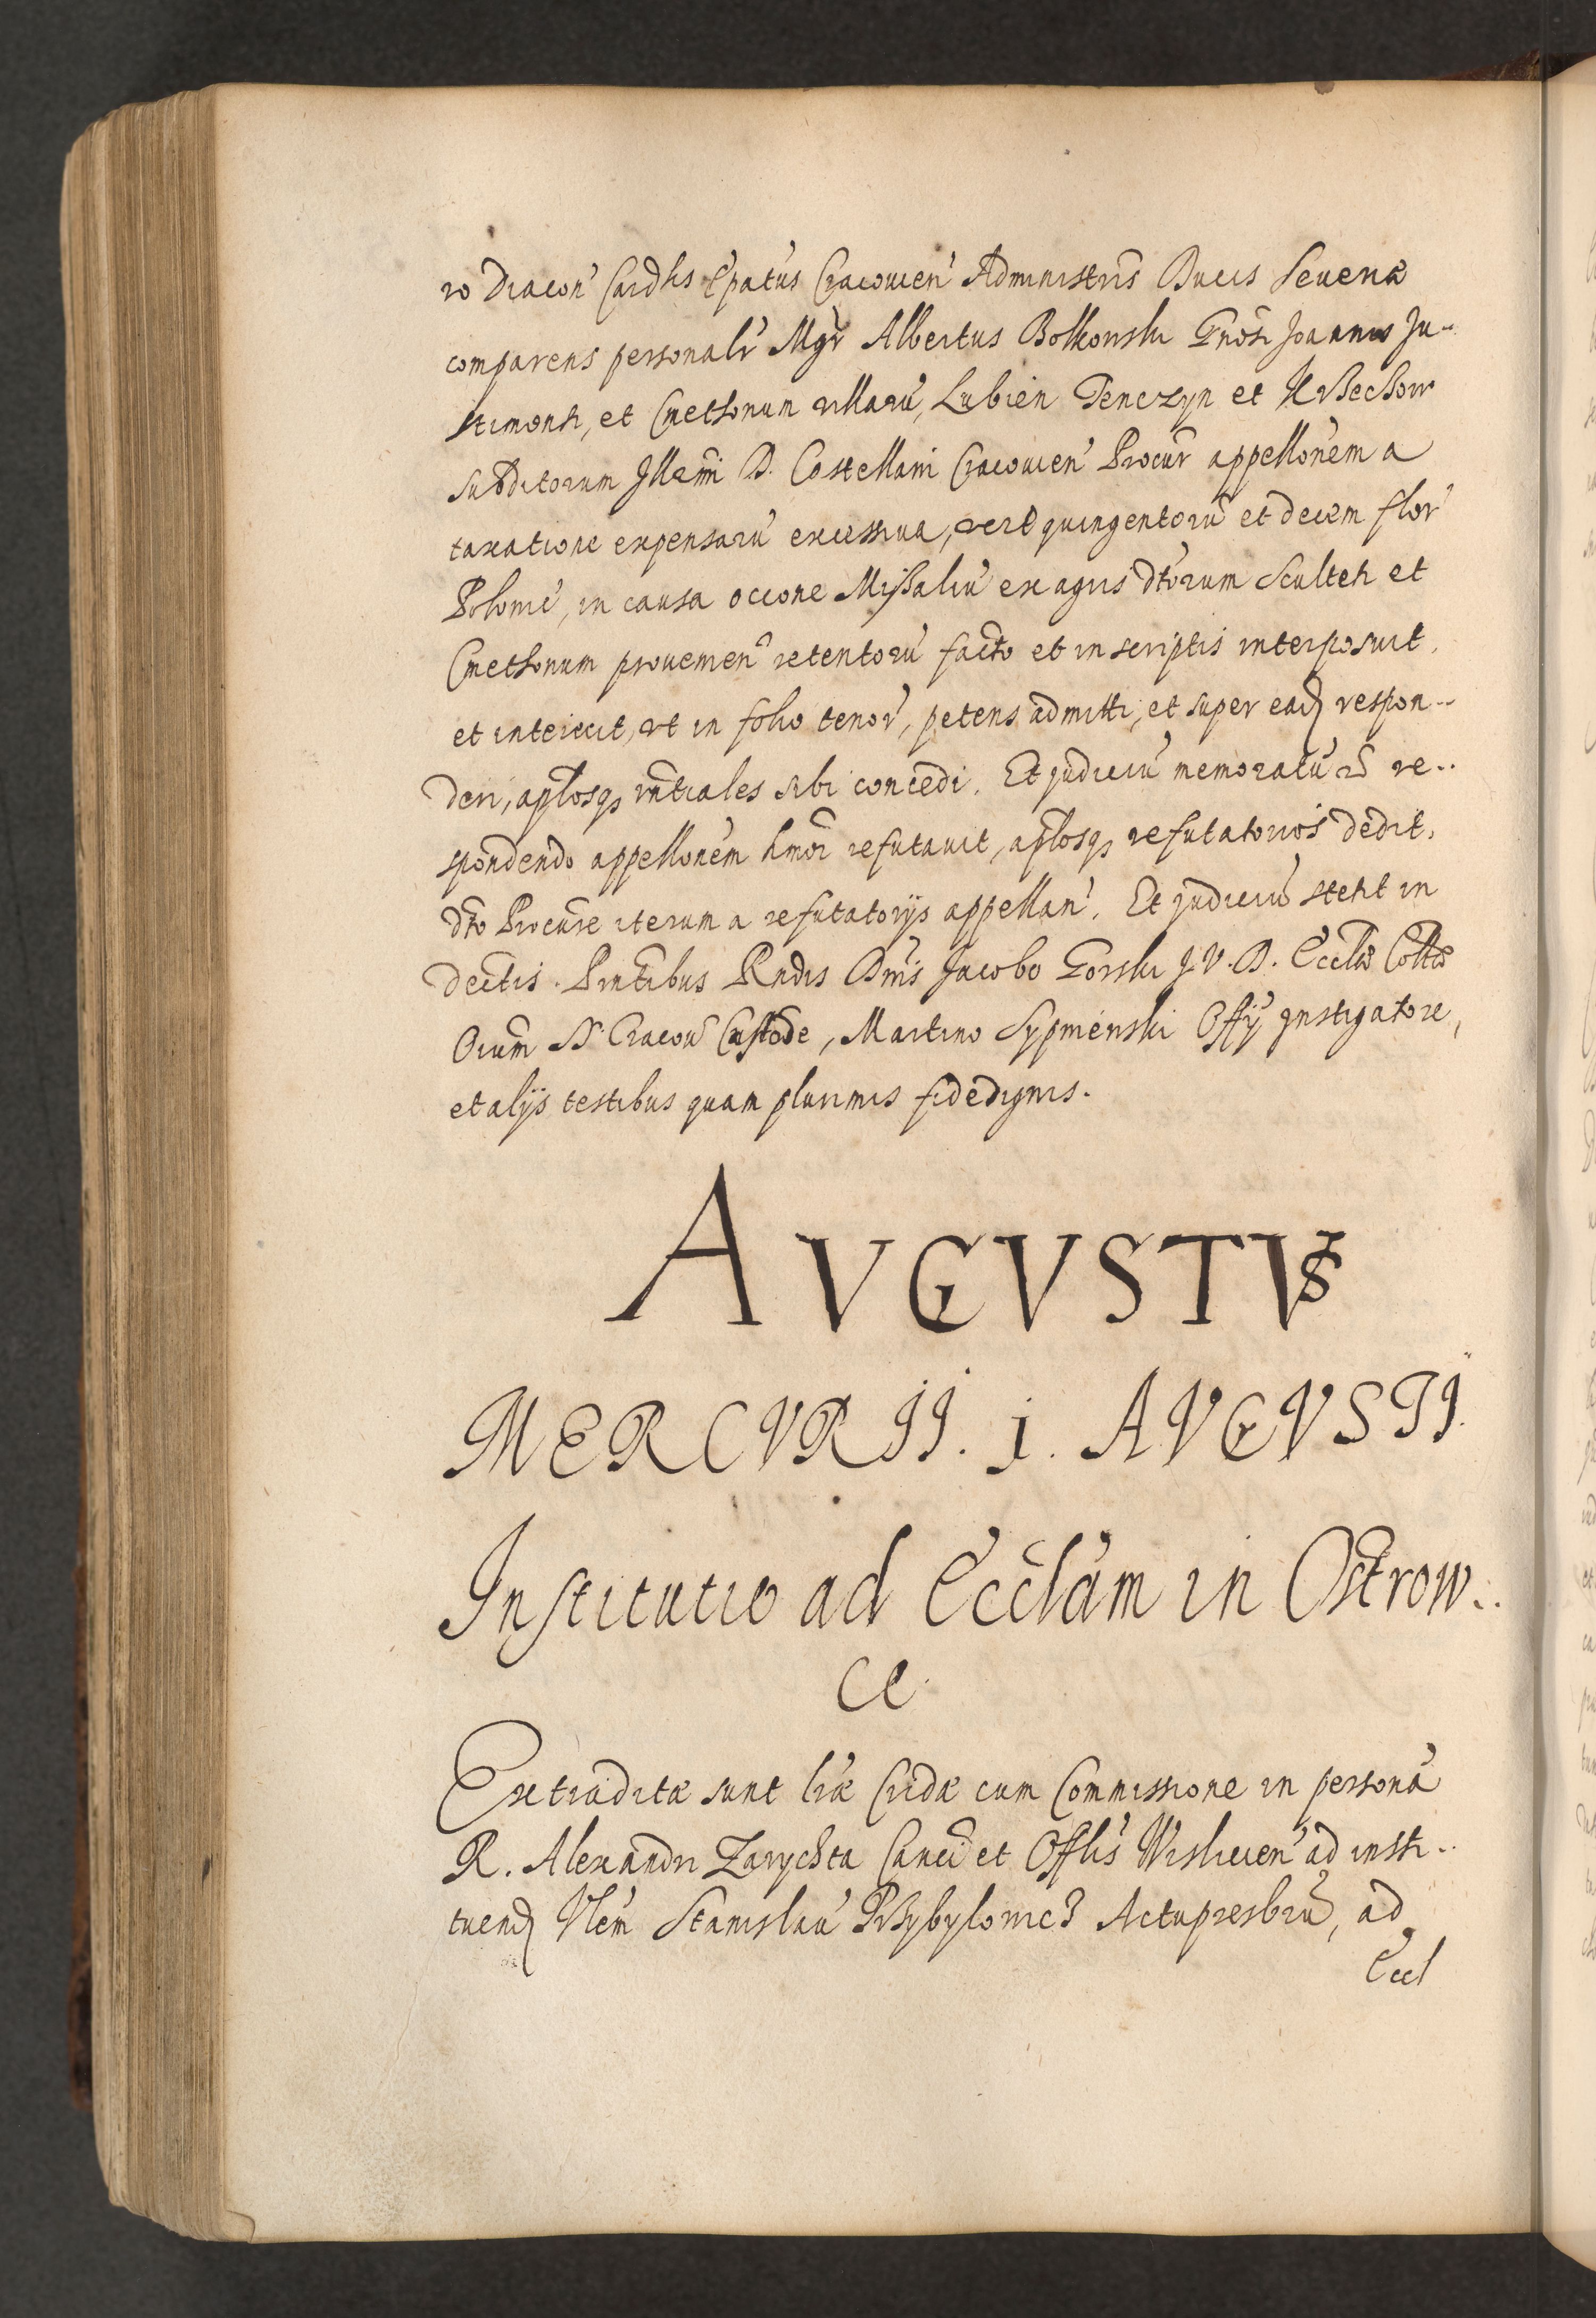 ro Diacon' Cardlis Epatus Cracouien' Administris Ducis Seueriæ
comparens personalr Mgr Albertus Bolkowski Gnosi Joannis Ju-
stimonti, et Cmethonum villarū, Lubien Tenczyn et Krzechow
subditorum Illrmi D. Castellani Cracouien' Procur appellonem a
taxatione expensarū excessiua, vert quingentorū et decem flor'
Poloni', in causa occone Missaliū ex agris dtorum Sculteti et
Cmethonum prouenien' retentorū facto et in scriptis interposuit,
et interiecit, vt in folio tenor', petens admitti, et super ead respon-
deri, aplosq3 rntiales sibi concedi. Et judiciū memoratū re-
spondendo appellonem hmoi refutauit, aplosq3 refutatorios dedit,
dto Procure iterum a refutatorijs appellan'. Et judiciū stetit in
dectis. Pntibus Rndis Dnis Jacobo Gorski J. V. D. Eccliæ Colltæ
Oium SS Cracou Custode, Martino Sypinienski Offij Instigatore,
et alijs testibus quam plurimis fide dignis.
AVGVSTVS
MERCVRII. 1. AVGVSTI.
Institutio ad Eccl'am in Ostrow-
ce.
Extraditæ sunt lræ Cridæ cum Commissione in personā
R. Alexandri Zarychta Canci et Offlis Wislicien' ad insti-
tuend Vlem Stanislaū Przybylowicz Actupresbrū, ad
Eccl